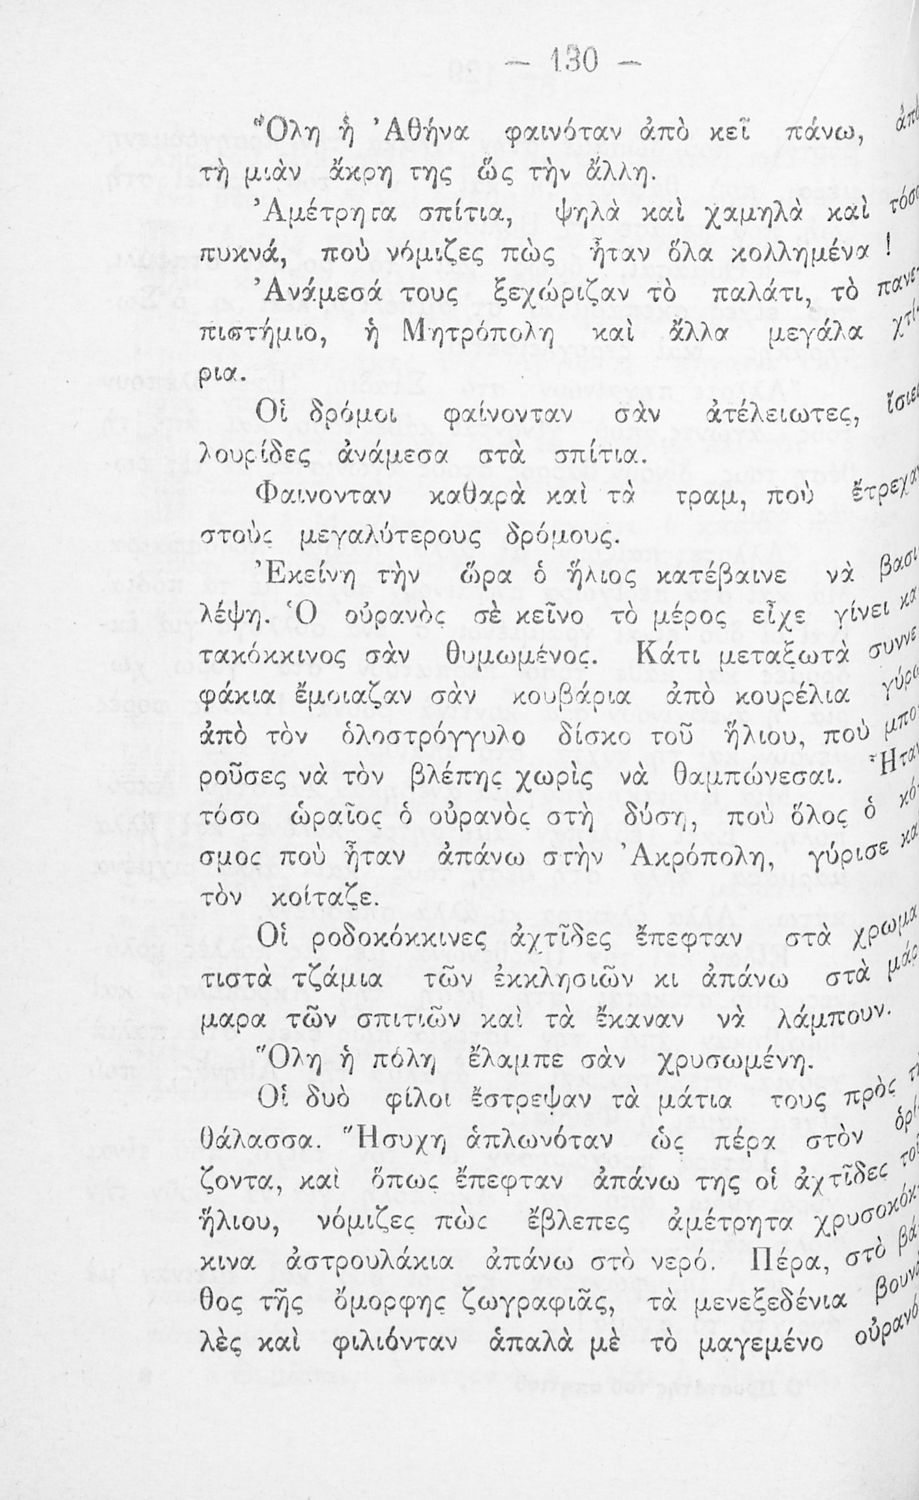 — 130 —
Ὅλη ἡ Ἀθήνα φαινόταν ἀπὸ κεῖ πάνω, ἀπὸ
τὴ μιὰν ἄκρη της ὥς τὴν ἄλλη.
Ἀμέτρητα σπίτια, ψηλὰ καὶ χαμηλὰ καὶ τόσο
πυκνά, ποὺ νόμιζες πὼς ἦταν ὅλα κολλημένα !
Ἀνάμεσά τους ξεχώριζαν τὸ παλάτι, τὸ πανε-
πιστήμιο, ἡ Μητρόπολη καὶ ἄλλα μεγάλα χτί-
ρια.
Οἱ δρόμοι φαίνονταν σὰν ἀτέλειωτες, ἴσιες
λουρίδες ἀνάμεσα στὰ σπίτια.
Φαινονταν καθαρὰ καὶ τὰ τραμ, ποὺ ἔτρεχαν
στοὺς μεγαλύτερους δρόμους.
Ἐκείνη τὴν ὥρα ὁ ἥλιος κατέβαινε νὰ βασι
λέψη. Ὁ οὐρανὸς σὲ κεῖνο τὸ μέρος εἶχε γίνει κα
τακόκκινος σὰν θυμωμένος. Κάτι μεταξωτὰ συννε
φάκια ἔμοιαζαν σὰν κουβάρια ἀπὸ κουρέλια γύρω
ἀπὸ τὸν ὁλοστρόγγυλο δίσκο τοῦ ἥλιου, ποὺ μπο
ροῦσες νὰ τὸν βλέπῃς χωρὶς νὰ θαμπώνεσαι. Ἦταν
τόσο ὡραῖος ὁ οὐρανὸς στὴ δύση, ποὺ ὅλος ὁ κό
σμος ποὺ ἦταν ἀπάνω στὴν Ἀκρόπολη, γύρισε καὶ
τὸν κοίταζε.
Οἱ ροδοκόκκινες ἀχτῖδες ἔπεφταν στὰ χρωμα
τιστὰ τζάμια τῶν ἐκκλησιῶν κι ἀπάνω στὰ μάρ
μαρα τῶν σπιτιῶν καὶ τὰ ἔκαναν νὰ λάμπουν.
Ὅλη ἡ πόλη ἔλαμπε σὰν χρυσωμένη.
Οἱ δυὸ φίλοι ἔστρεψαν τὰ μάτια τους πρὸς τὴ
θάλασσα. Ἥσυχη ἁπλωνόταν ὡς πέρα στὸν ὁρί
ζοντα, καὶ ὅπως ἔπεφταν ἀπάνω της οἱ ἀχτῖδες τοῦ
ἥλιου, νόμιζες πὼς ἔβλεπες ἀμέτρητα χρυσοκόκ
κινα ἀστρουλάκια ἀπάνω στὸ νερό. Πέρα, στὸ βά
θος τῆς ὄμορφης ζωγραφιᾶς, τὰ μενεξεδένια βουνὰ
λὲς καὶ φιλιόνταν ἁπαλὰ μὲ τὸ μαγεμένο οὐρανό